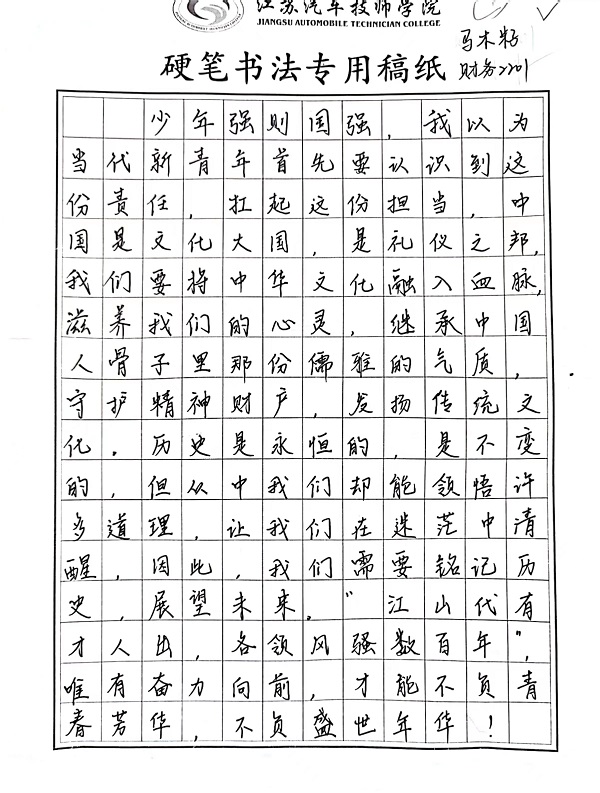 江苏汽车技师学院
JIANGSU AUTOMOBILE TECHNICIAN COLLEGE
硬笔书法专用稿纸
马木籽
财务2201
少年强则国强，我以为
当代新青年首先要认识到这
份责任，扛起这份担当，中
国是文化大国，是礼仪之邦，
我们要将中华文化融入血脉，
滋养我们的心灵，继承中国
人骨子里那份儒雅的气质，
守护精神财产，发扬传统文
化。历史是永恒的，是不变
的，但从中我们却能领悟许
多道理，让我们在迷茫中清
醒，因此，我们需要铭记历
史，展望未来。“江山代有
才人出，各领风骚数百年”，
唯有奋力向前，才能不负青
春芳华，不负盛世年华！